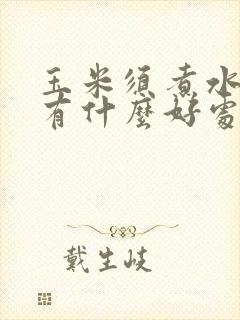 玉米須煮水
有什麼好處
戴生岐